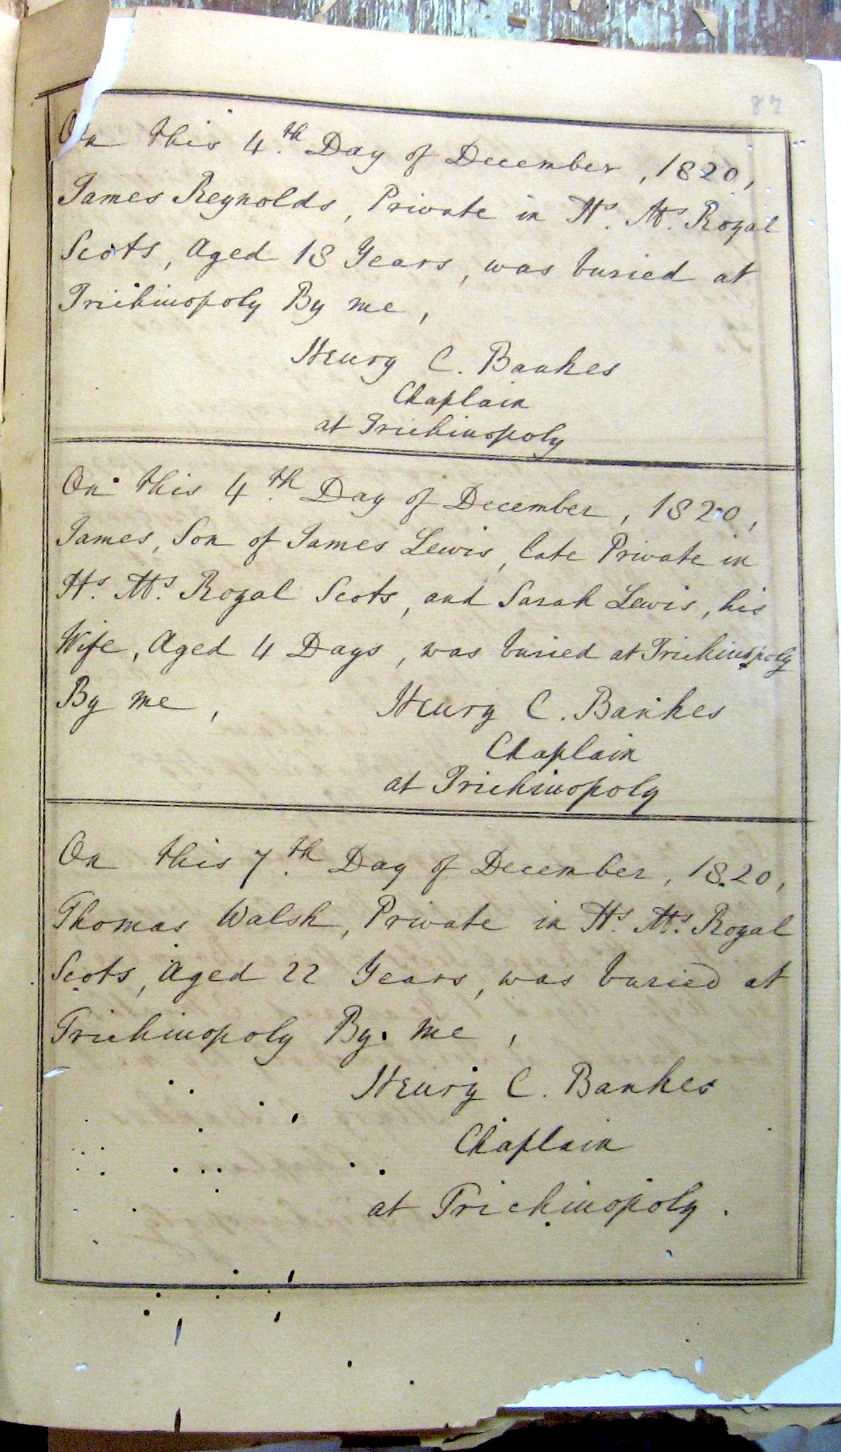 87
On this 4.th Day of December, 1820,
James Reynolds, Private in Hs. Ms. Royal
Scots, Aged 18 Years, was buried at
Trichinopoly By me,
Henry C. Bankes
Chaplain
at Trichinopoly
On this 4.th Day of December, 1820,
James, Son of James Lewis, late Private in
Hs. Ms. Royal Scots, and Sarah Lewis, his
Wife, Aged 4 Days, was buried at Trichinopoly
By me, Henry C. Bankes
Chaplain
at Trichinopoly
On this 7.th Day of December, 1820,
Thomas Walsh, Private in Hs. Ms. Royal
Scots, Aged 22 Years, was buried at
Trichinopoly By me,
Henry C. Bankes
Chaplain
at Trichinopoly.